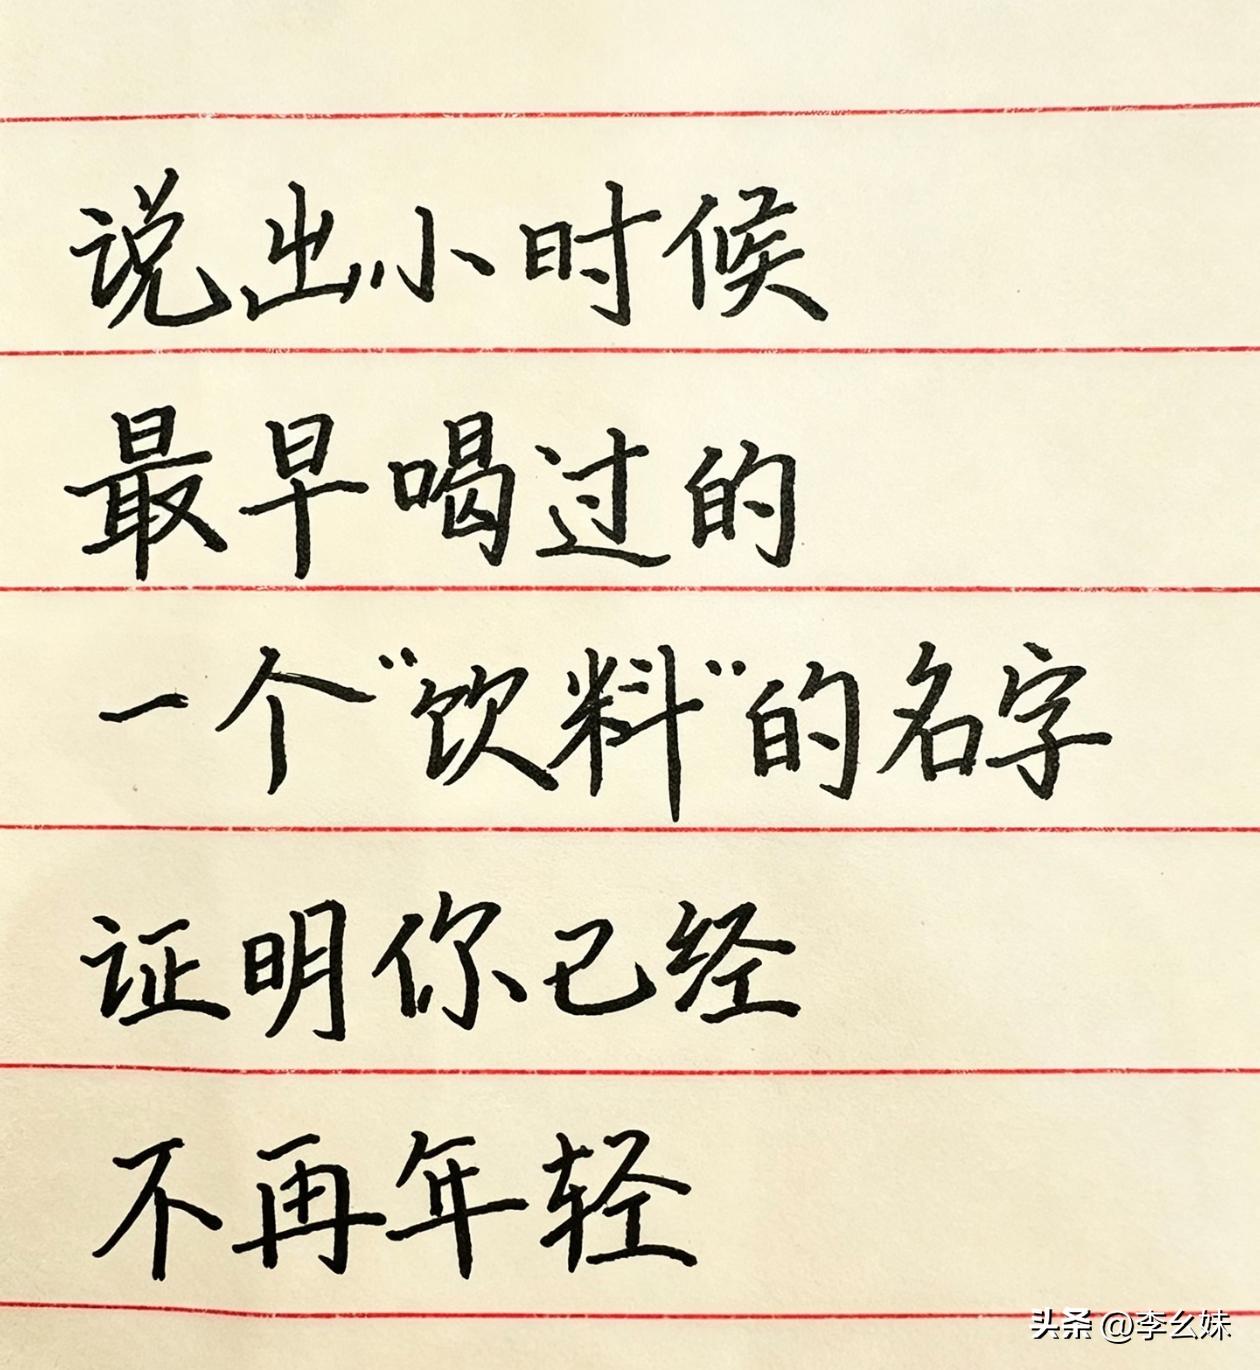 说出小时候
最早喝过的
一个“饮料”的名字
证明你已经
不再年轻
头条 @李幺妹